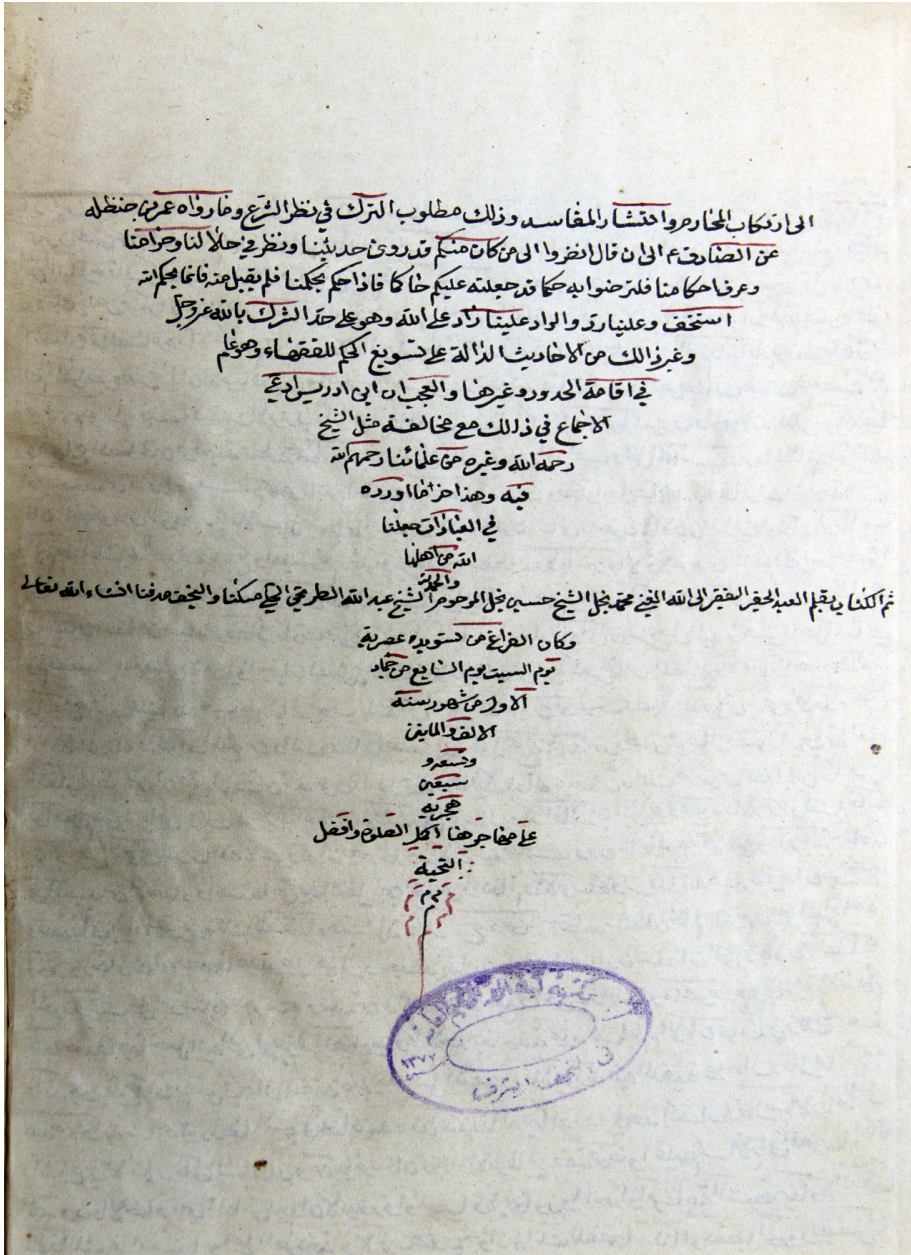 الى ارتكاب المحارم وانتشار المفاسد وذلك مطلوب الترك في نظر الشرع وما رواه عمر بن حنظله
عن الصادق ع الى ان قال انظروا الى من كان منكم قد روى حديثنا ونظر في حلالنا وحرامنا
وعرف احكامنا فلترضوا به حكما قد جعلته عليكم حاكما فاذا حكم بحكمنا فلم يقبل منه فانما بحكم الله
استخف وعلينا رد والراد علينا راد على الله وهو على حد الشرك بالله عز وجل
وغير ذالك من الاحاديث الدالة على تسويغ الحكم للفقهاء وهو عام
في اقامة الحدود وغيرها والعجب ان ابن ادريس ادعى
الاجماع في ذلك مع مخالفة مثل الشيخ
رحمه الله وغيره من علمائنا رحمهم الله
فيه وهذا اخر ما اورده
في العبادات جعلنا
الله من اهلها
والحمد لله
تم الكتاب بقلم العبد الحقير الفقير الى الله الغني محمد نجل الشيخ حسين نجل المرحوم الشيخ عبد الله مسكنا والنجف مدفنا انشاء الله تعالى
وكان الفراغ من تسويده عصرية
يوم السبت يوم السابع من جماد
الاول من شهور سنة
الالف والمايتين
وتسعه و
سبعين
هجريه
على مهاجرها اكمل الصلوة وافضل
التحية
م م م
مكتبة العامة
١٣٧٧
في النجف الاشرف